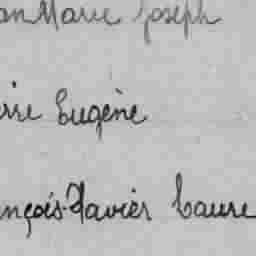 an Marie Joseph
erre Eugène
ançois-Xavier Laure